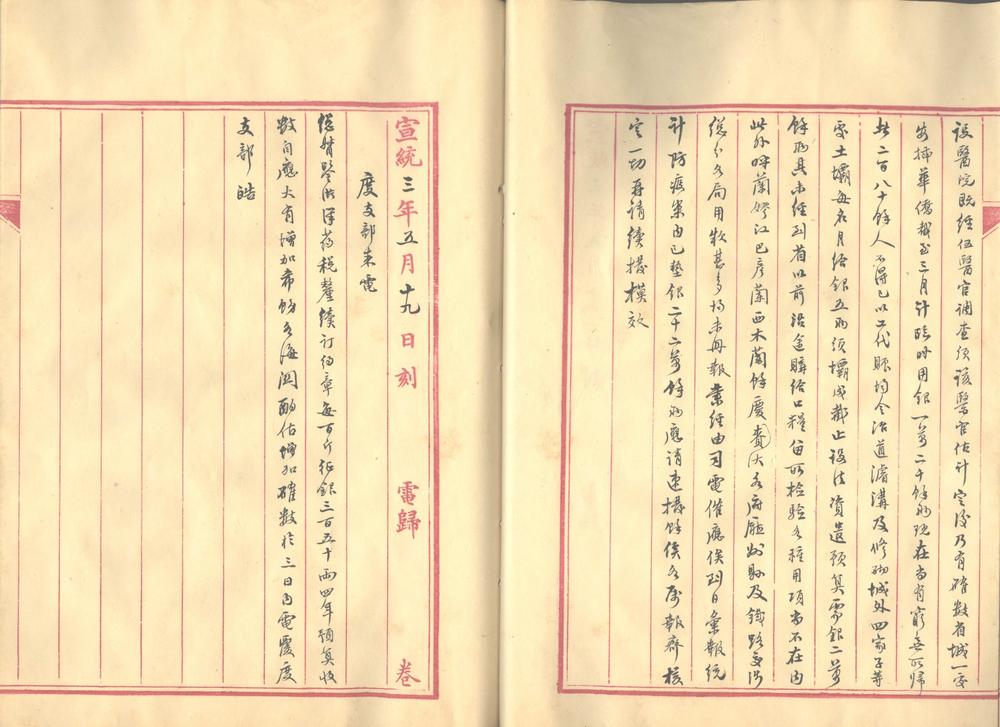 設醫院既經伍醫官調查須該醫官估計定後乃有確數省城一處
安插華僑截至三月計臨時用銀一萬二千餘兩現在尚有窮無所歸
者二百八十餘人不得已以工代賑均令治道濬溝及修砌城外四家子等
處土壩每名月給銀五兩須壩成都止設法資遣預算需銀二萬
餘兩其未經到省以前沿途購給口糧留所檢驗各種用項尚不在內
此外呼蘭嫩江巴彥蘭西木蘭餘慶賚大各府廳州縣及鐵路交涉
總分各局用款甚多均未冊報業經由司電催應俟到日彙報統
計防疫案內已墊銀二十二萬餘兩應請速撥餘俟各屬報齊核
定一切再請續撥模效
宣統三年五月十九日刻 電歸 卷
度支部來電
總督鑒洪洋药税釐續訂約章每百斤征銀三百五十兩四年預算收
數自應大有增加希飭各海關酌估增加確數於三日內電覆度
支部皓